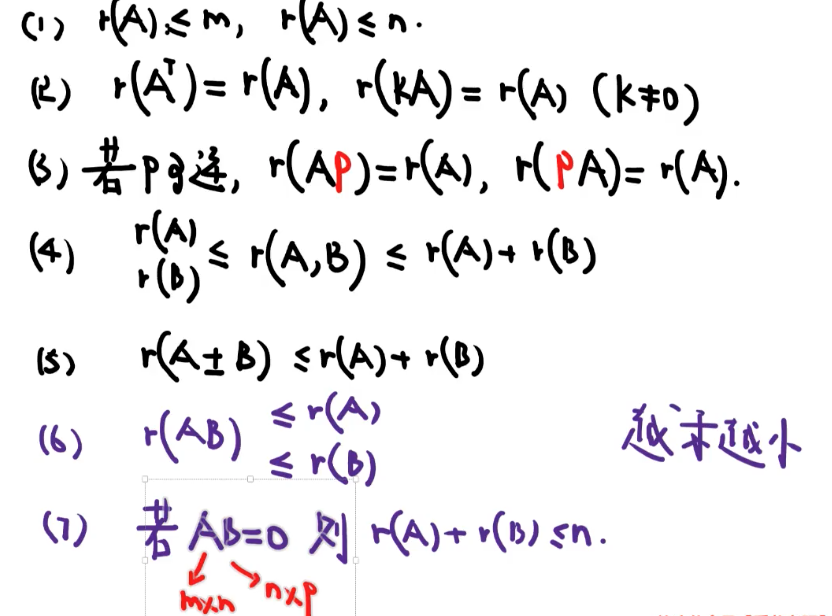 (1) r(A) ≤ m, r(A) ≤ n.
(2) r(Aᵀ) = r(A), r(kA) = r(A) (k≠0)
(3) 若P可逆, r(AP)=r(A), r(PA)=r(A).
(4) r(A) r(B) ≤ r(A,B) ≤ r(A)+r(B)
(5) r(A±B) ≤ r(A)+r(B)
(6) r(AB) ≤ r(A) ≤ r(B) 越乘越小
(7) 若 AB=0 则 r(A)+r(B) ≤ n.
m×n n×p